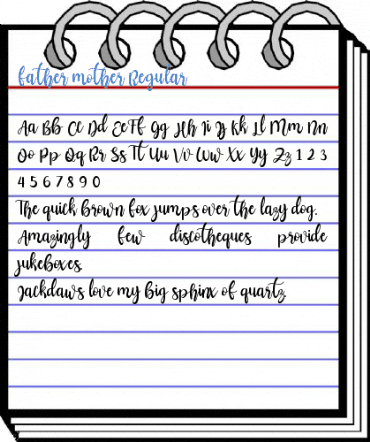 father mother Regular
Aa Bb Cc Dd Ee Ff Gg Hh Ii Jj Kk Ll Mm Nn
Oo Pp Qq Rr Ss Tt Uu Vv Ww Xx Yy Zz 1 2 3
4 5 6 7 8 9 0
The quick brown fox jumps over the lazy dog.
Amazingly few discotheques provide
jukeboxes.
Jackdaws love my big sphinx of quartz.